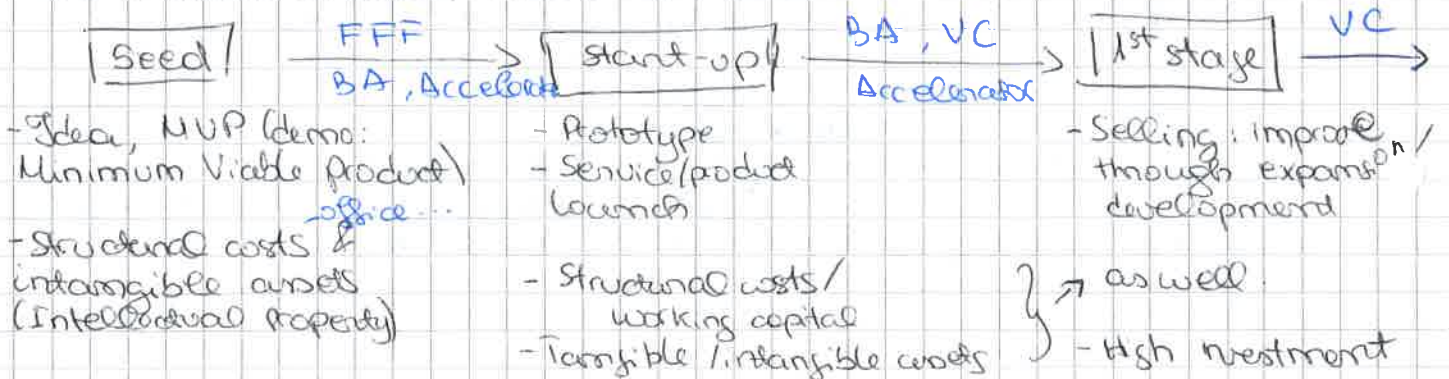 FFF
BA, VC
VC
Seed
Start-up
1st stage
BA, Accelerate
Accelerator
- Idea, MVP (demo:
Minimum Viable Product)
- office ...
- Structural costs &
intangible assets
(Intellectual property)
- Prototype
- Service/product
launch
- Structural costs/
working capital
- Tangible/intangible assets
- Selling: improve
through expansion/
development
as well.
- High investment